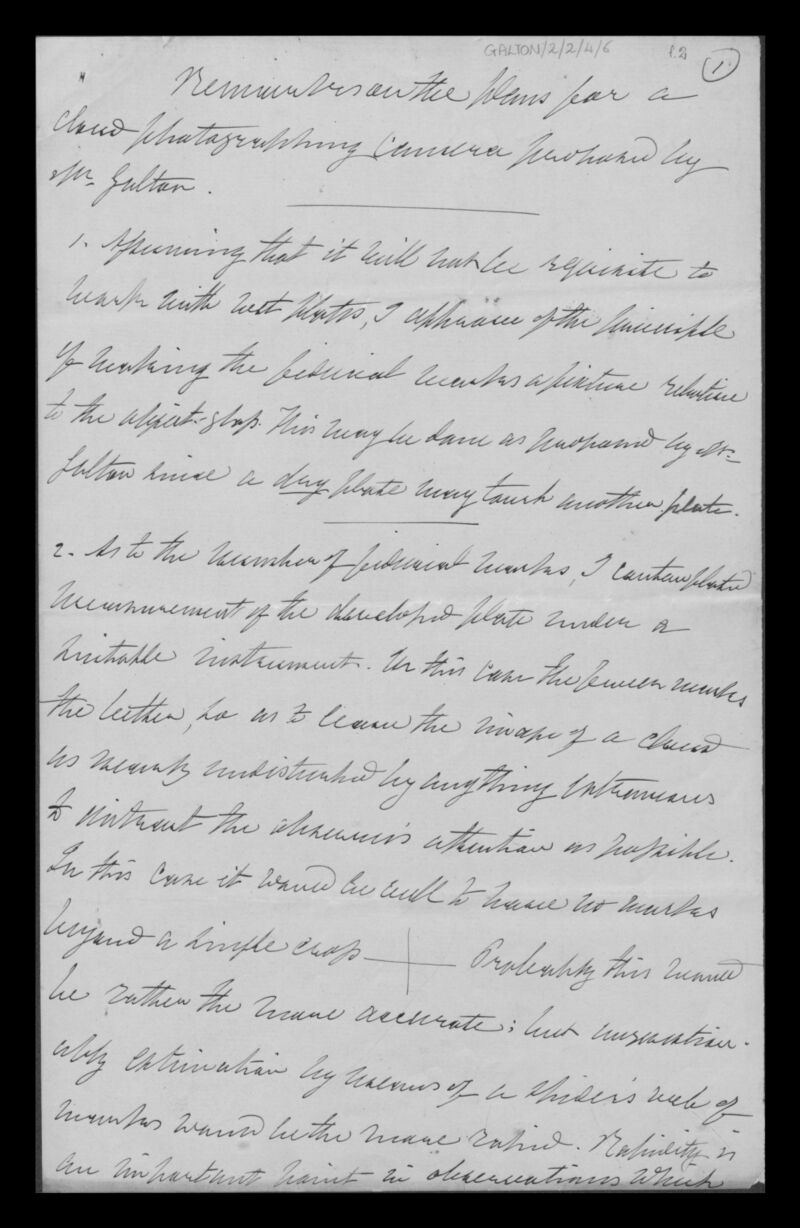 GALTON/2/2/4/6 f.2 1
Remarks on the plans for a
cloud photographing camera proposed by
Mr. Galton.
1. Assuming that it will not be requisite to
work with wet plates, I approve of the principle
of making the fiducial marks a fixture relative
to the object-glass. This may be done as proposed by Mr.
Galton since a dry plate may touch another plate.
2. As to the number of fiducial marks, I contemplated
measurement of the developed plate under a
suitable instrument. In this case the fewer marks
the better, so as to leave the image of a cloud
as nearly undisturbed by anything extraneous
to distract the observer's attention as possible.
In this case it would be well to have no marks
beyond a single cross Probably this would
be rather the more accurate; but unquestion-
ably estimation by means of a spider's web of
marks would be the more rapid. Rapidity is
an important point in observations which